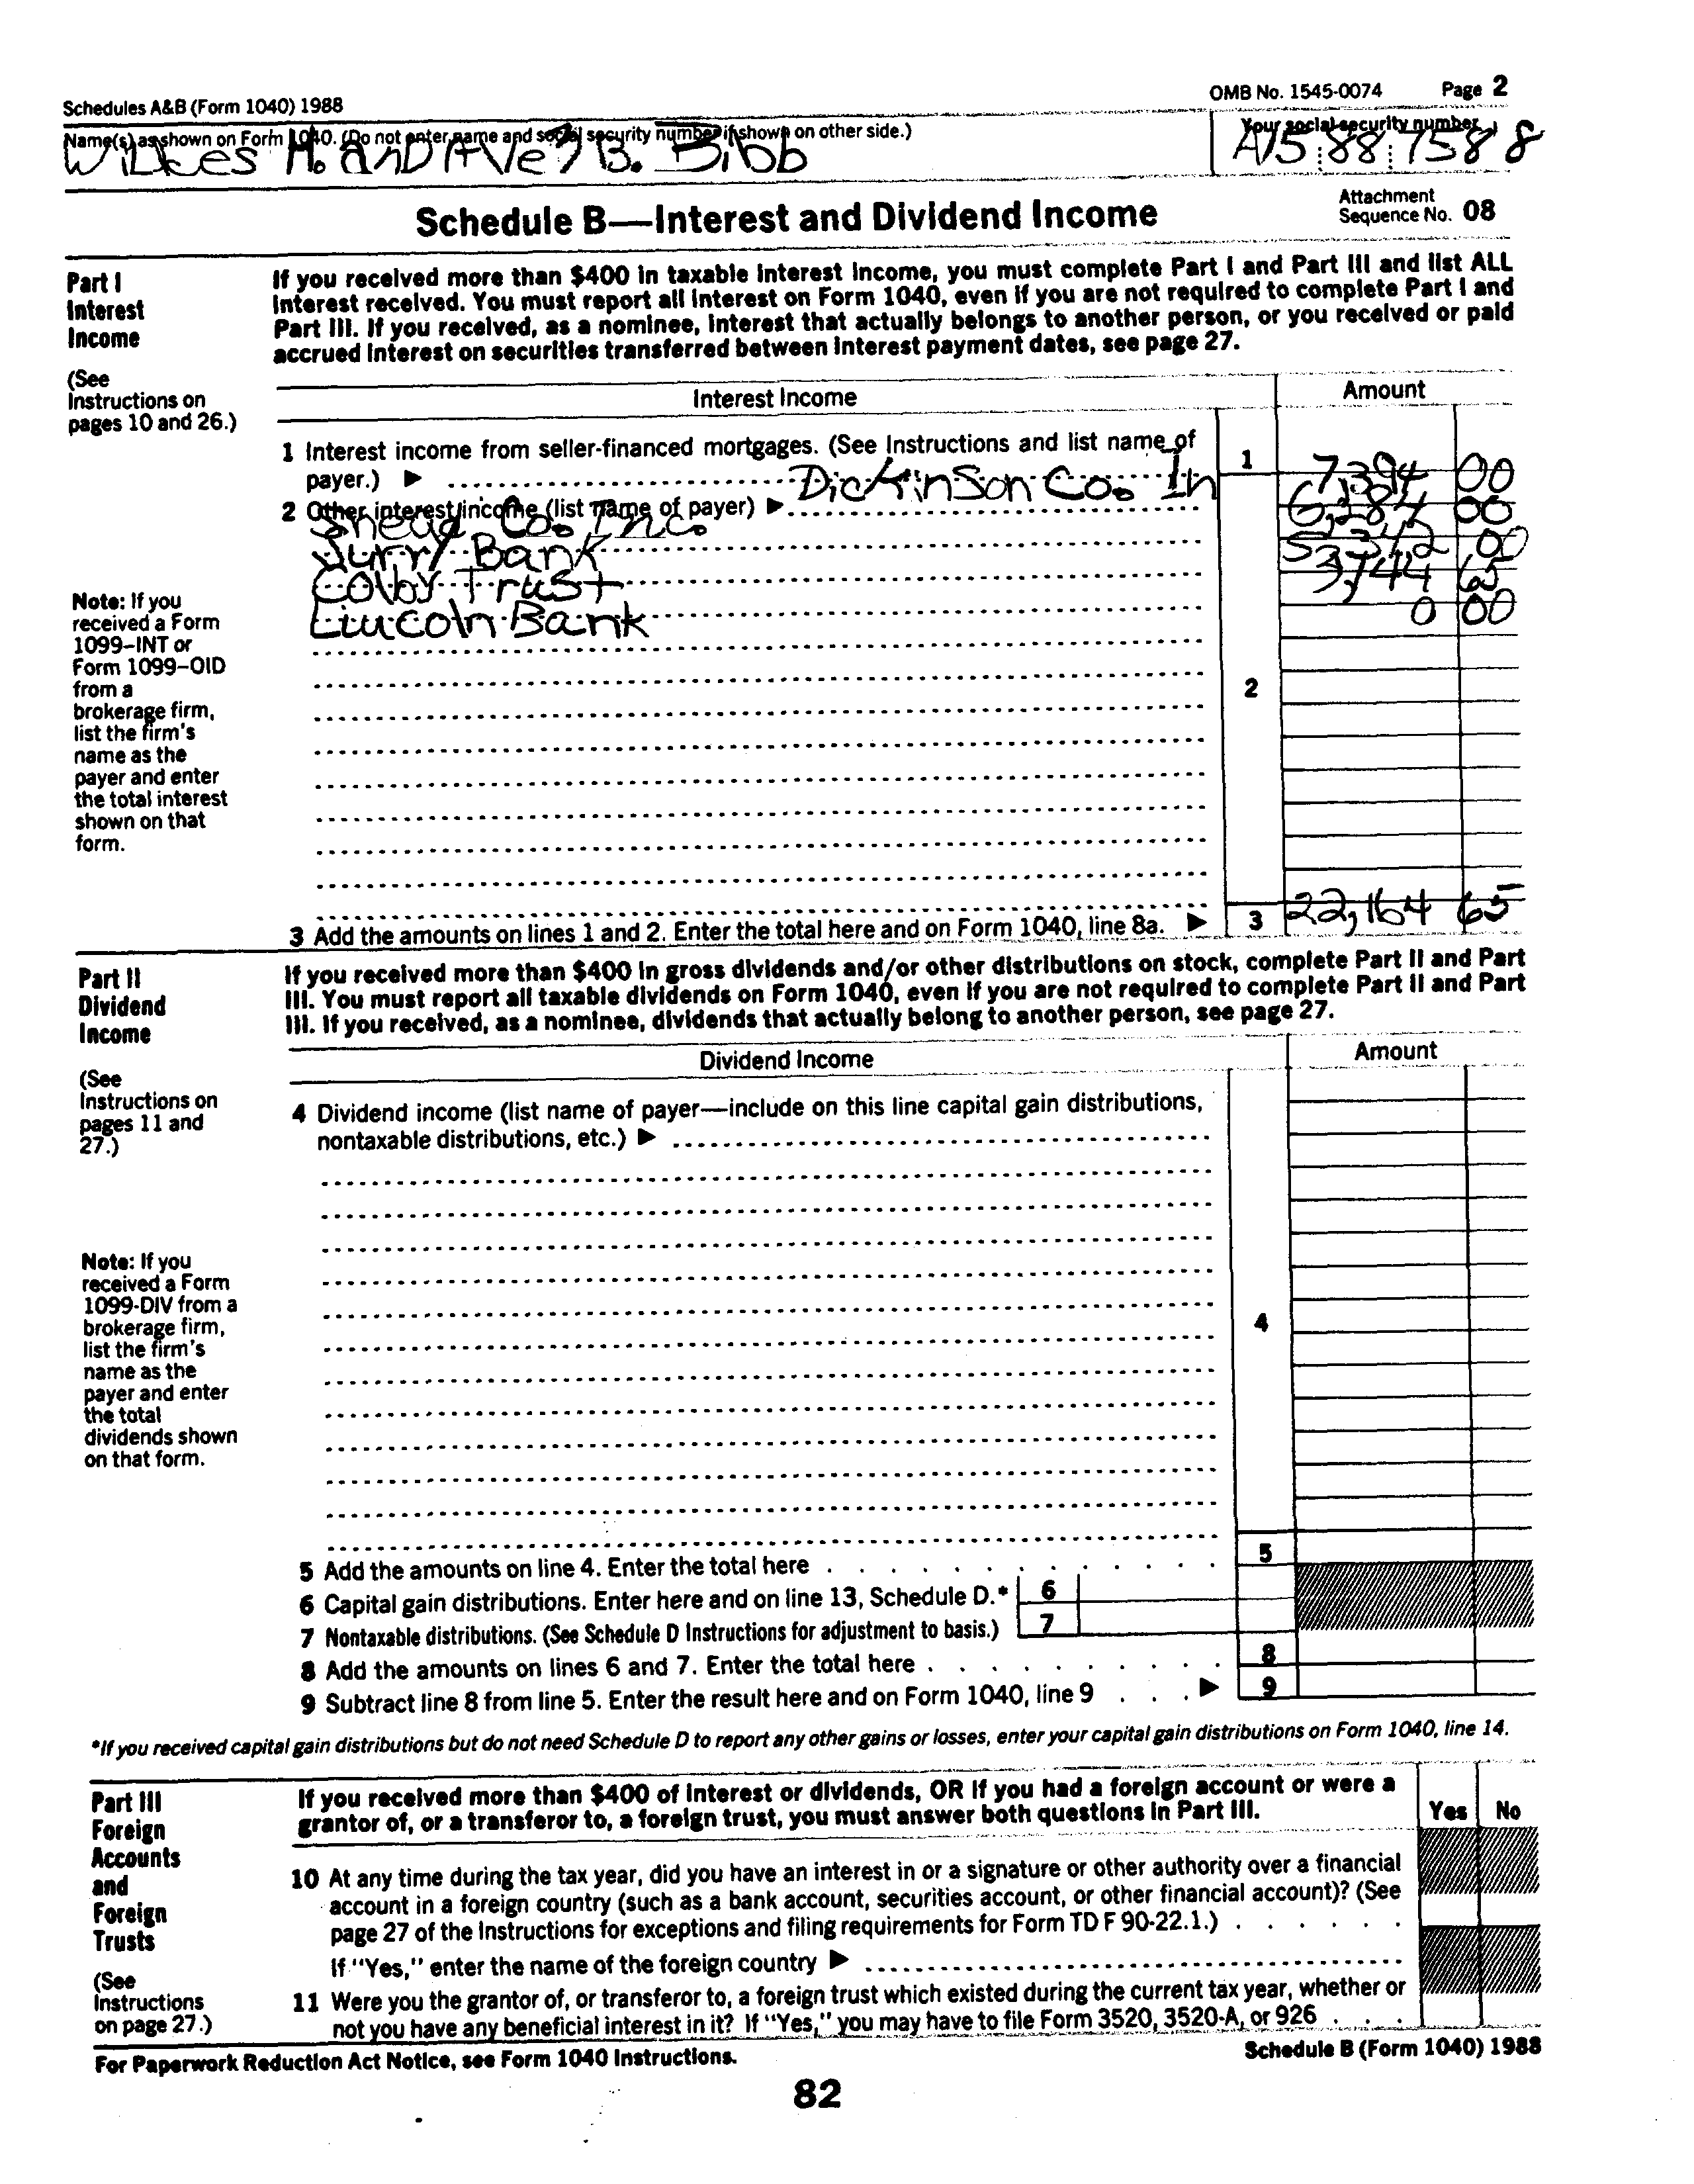 Schedules A&B (Form 1040) 1988
OMB No. 1545-0074 Page 2
Name(s) as shown on Form 1040. (Do not enter name and social security number if shown on other side.)
Your social security number
H. and B. Bibb
88 7588
Schedule B—Interest and Dividend Income
Attachment
Sequence No. 08
Part I
Interest
Income
(See
Instructions on
pages 10 and 26.)
If you received more than $400 in taxable interest income, you must complete Part I and Part III and list ALL
interest received. You must report all interest on Form 1040, even if you are not required to complete Part I and
Part III. If you received, as a nominee, interest that actually belongs to another person, or you received or paid
accrued interest on securities transferred between interest payment dates, see page 27.
Interest Income
Amount
1 Interest income from seller-financed mortgages. (See Instructions and list name of
payer.) ▶ Dickinson Co. In
1 7,394 00
2 Other interest income (list name of payer) ▶
Snead Co. Inc. 6,284 00
Surry Bank 5,342 00
Colby Trust 3,144 65
Lincoln Bank 0 00
2
Note: If you
received a Form
1099–INT or
Form 1099–OID
from a
brokerage firm,
list the firm's
name as the
payer and enter
the total interest
shown on that
form.
3 Add the amounts on lines 1 and 2. Enter the total here and on Form 1040, line 8a. ▶ 3 22,164 65
Part II
Dividend
Income
(See
Instructions on
pages 11 and
27.)
If you received more than $400 in gross dividends and/or other distributions on stock, complete Part II and Part
III. You must report all taxable dividends on Form 1040, even if you are not required to complete Part II and Part
III. If you received, as a nominee, dividends that actually belong to another person, see page 27.
Dividend Income
Amount
4 Dividend income (list name of payer—include on this line capital gain distributions,
nontaxable distributions, etc.) ▶
4
Note: If you
received a Form
1099-DIV from a
brokerage firm,
list the firm's
name as the
payer and enter
the total
dividends shown
on that form.
5 Add the amounts on line 4. Enter the total here 5
6 Capital gain distributions. Enter here and on line 13, Schedule D.* 6
7 Nontaxable distributions. (See Schedule D Instructions for adjustment to basis.) 7
8 Add the amounts on lines 6 and 7. Enter the total here 8
9 Subtract line 8 from line 5. Enter the result here and on Form 1040, line 9 ▶ 9
*If you received capital gain distributions but do not need Schedule D to report any other gains or losses, enter your capital gain distributions on Form 1040, line 14.
Part III
Foreign
Accounts
and
Foreign
Trusts
(See
Instructions
on page 27.)
If you received more than $400 of interest or dividends, OR if you had a foreign account or were a
grantor of, or a transferor to, a foreign trust, you must answer both questions in Part III.
Yes No
10 At any time during the tax year, did you have an interest in or a signature or other authority over a financial
account in a foreign country (such as a bank account, securities account, or other financial account)? (See
page 27 of the Instructions for exceptions and filing requirements for Form TD F 90-22.1.)
If "Yes," enter the name of the foreign country ▶
11 Were you the grantor of, or transferor to, a foreign trust which existed during the current tax year, whether or
not you have any beneficial interest in it? If "Yes," you may have to file Form 3520, 3520-A, or 926
For Paperwork Reduction Act Notice, see Form 1040 Instructions.
Schedule B (Form 1040) 1988
82